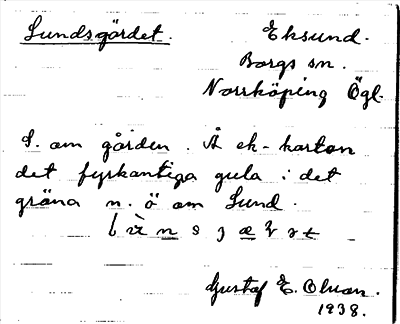 Lundsgärdet. Eksund.
Borgs sn.
Norrköping Ögl.
S. om gården. Å ek-kartan
det fyrkantiga gula i det
gröna n. ö om Lund.
Gustaf E. Olsson.
1938.